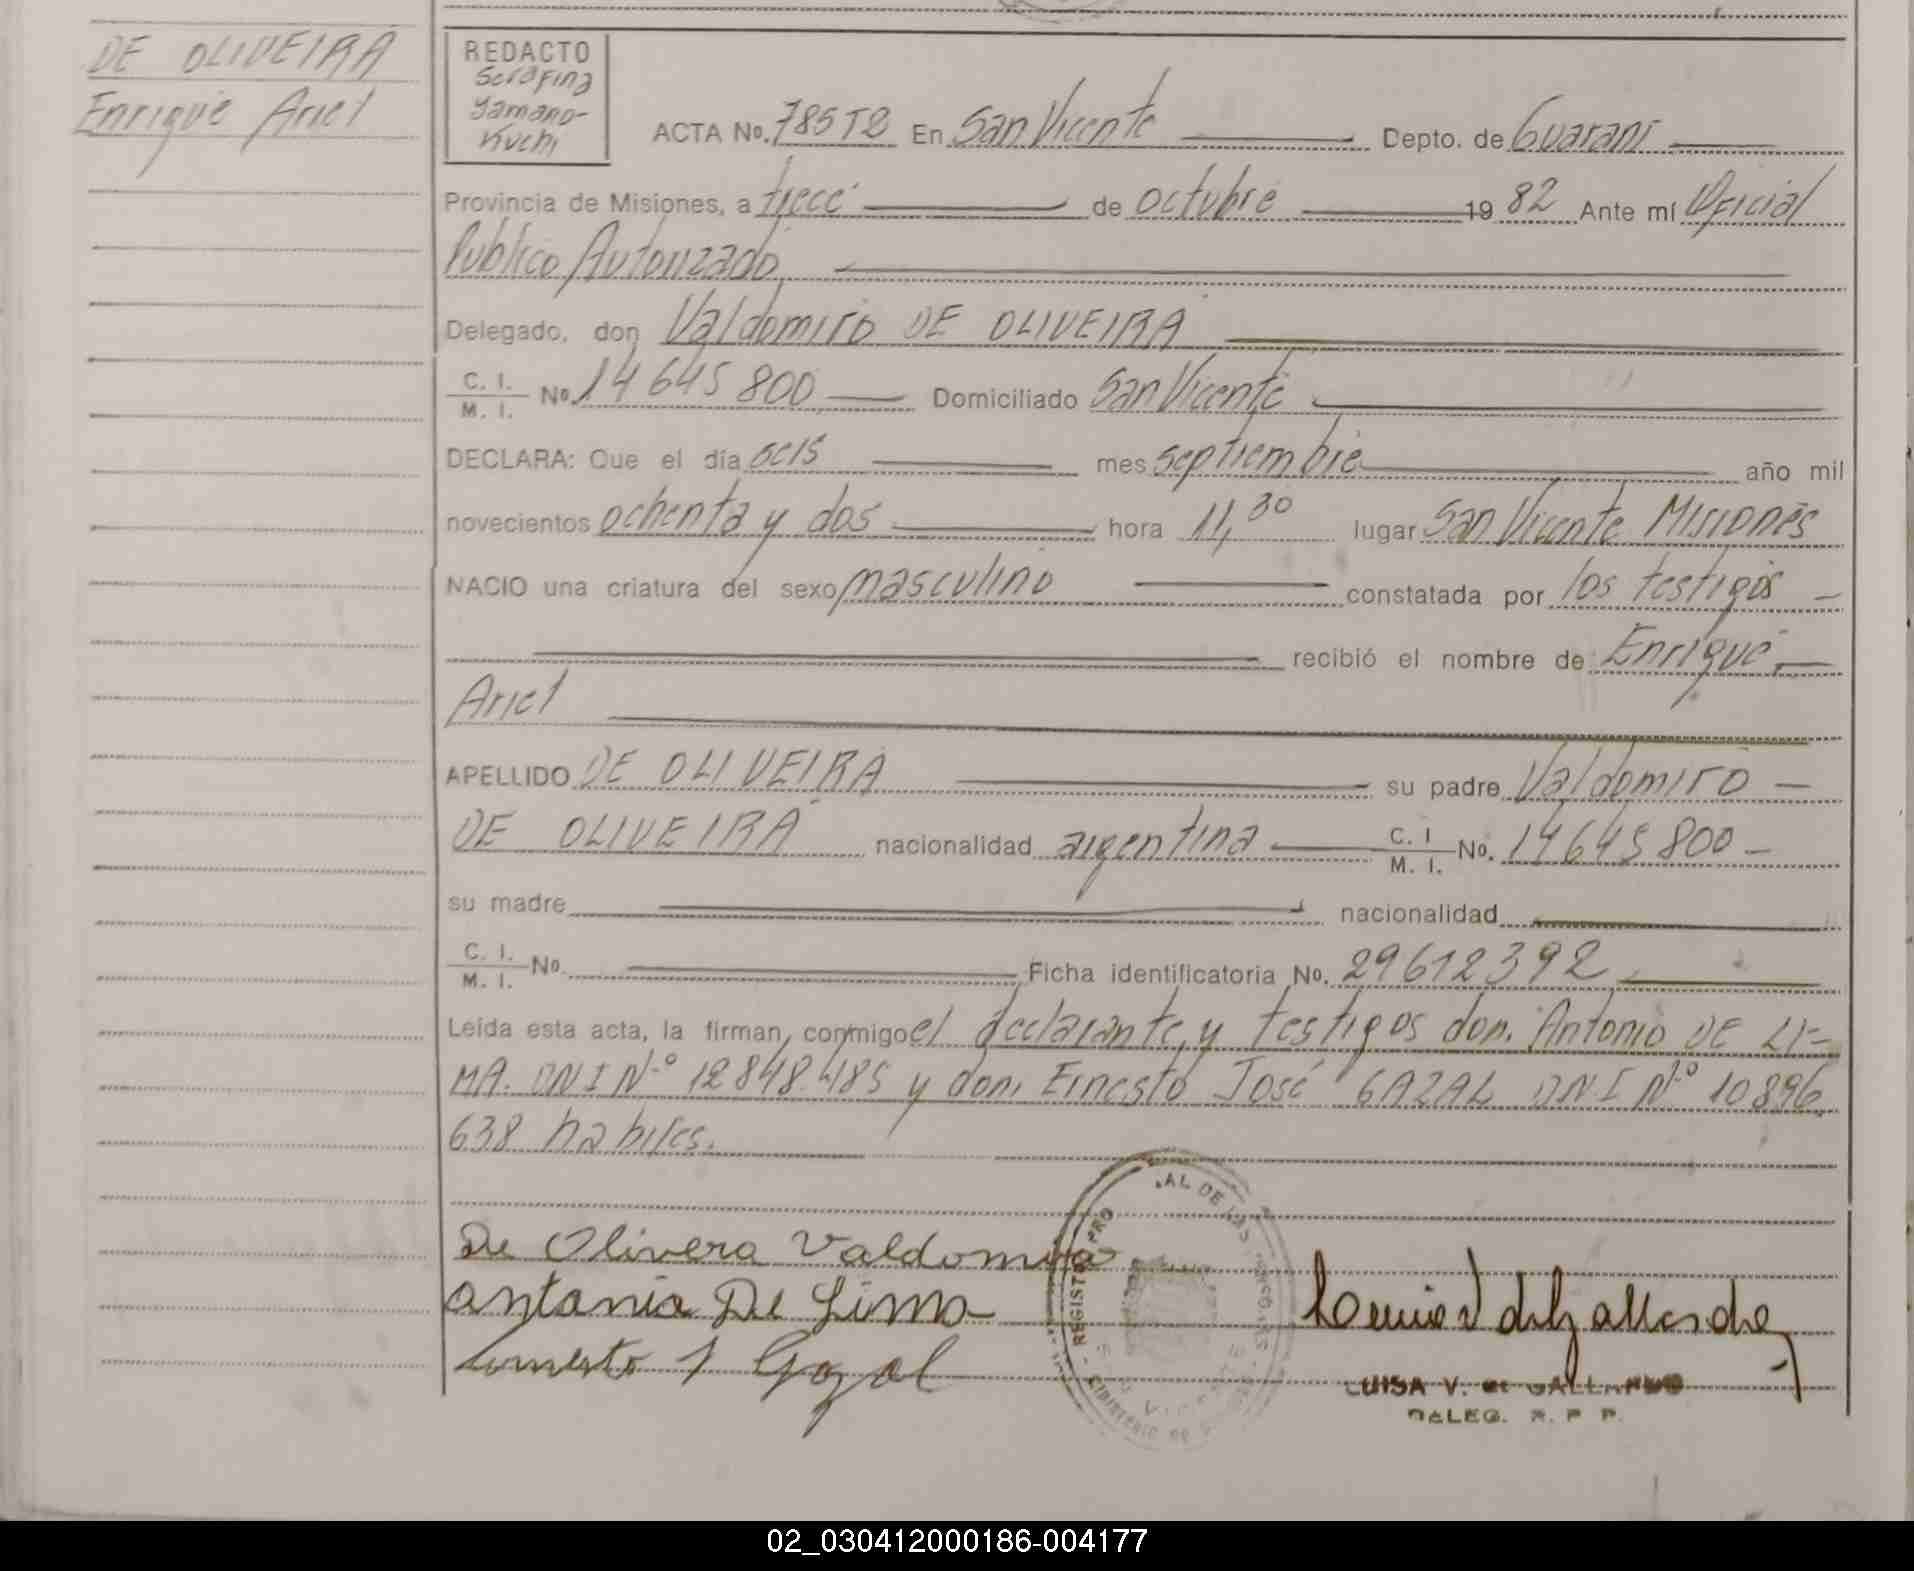 DE OLIVEIRA
Enrique Ariel
REDACTO
Serafina
Yamano-
Kuchi
ACTA No. 785T2 En San Vicente Depto. de Guaraní
Provincia de Misiones, a trece de octubre 19 82 Ante mí Oficial
Público Autorizado
Delegado, don Valdomiro DE OLIVEIRA
C. I. / M. I. No. 14645800 Domiciliado San Vicente
DECLARA: Que el día seis mes septiembre año mil
novecientos ochenta y dos hora 11,30 lugar San Vicente Misiones
NACIO una criatura del sexo masculino constatada por los testigos -
recibió el nombre de Enrique
Ariel
APELLIDO DE OLIVEIRA su padre Valdomiro -
DE OLIVEIRA nacionalidad argentina C. I / M. I. No. 14645800 -
su madre nacionalidad
C. I. / M. I. No. Ficha identificatoria No. 29612392
Leída esta acta, la firman, conmigo el declarante, y testigos don. Antonio DE LI-
MA. DNI N.º 12848.485 y don. Ernesto José GAZAL DNI N.º 10896.
638 habiles.
De Olivera Valdomiro
antonia De Lima
Ernesto J Gazal
REGISTRO PRO AL DE LAS
LUISA V. de GALLARDO
DELEG. R. P. P.
02_030412000186-004177